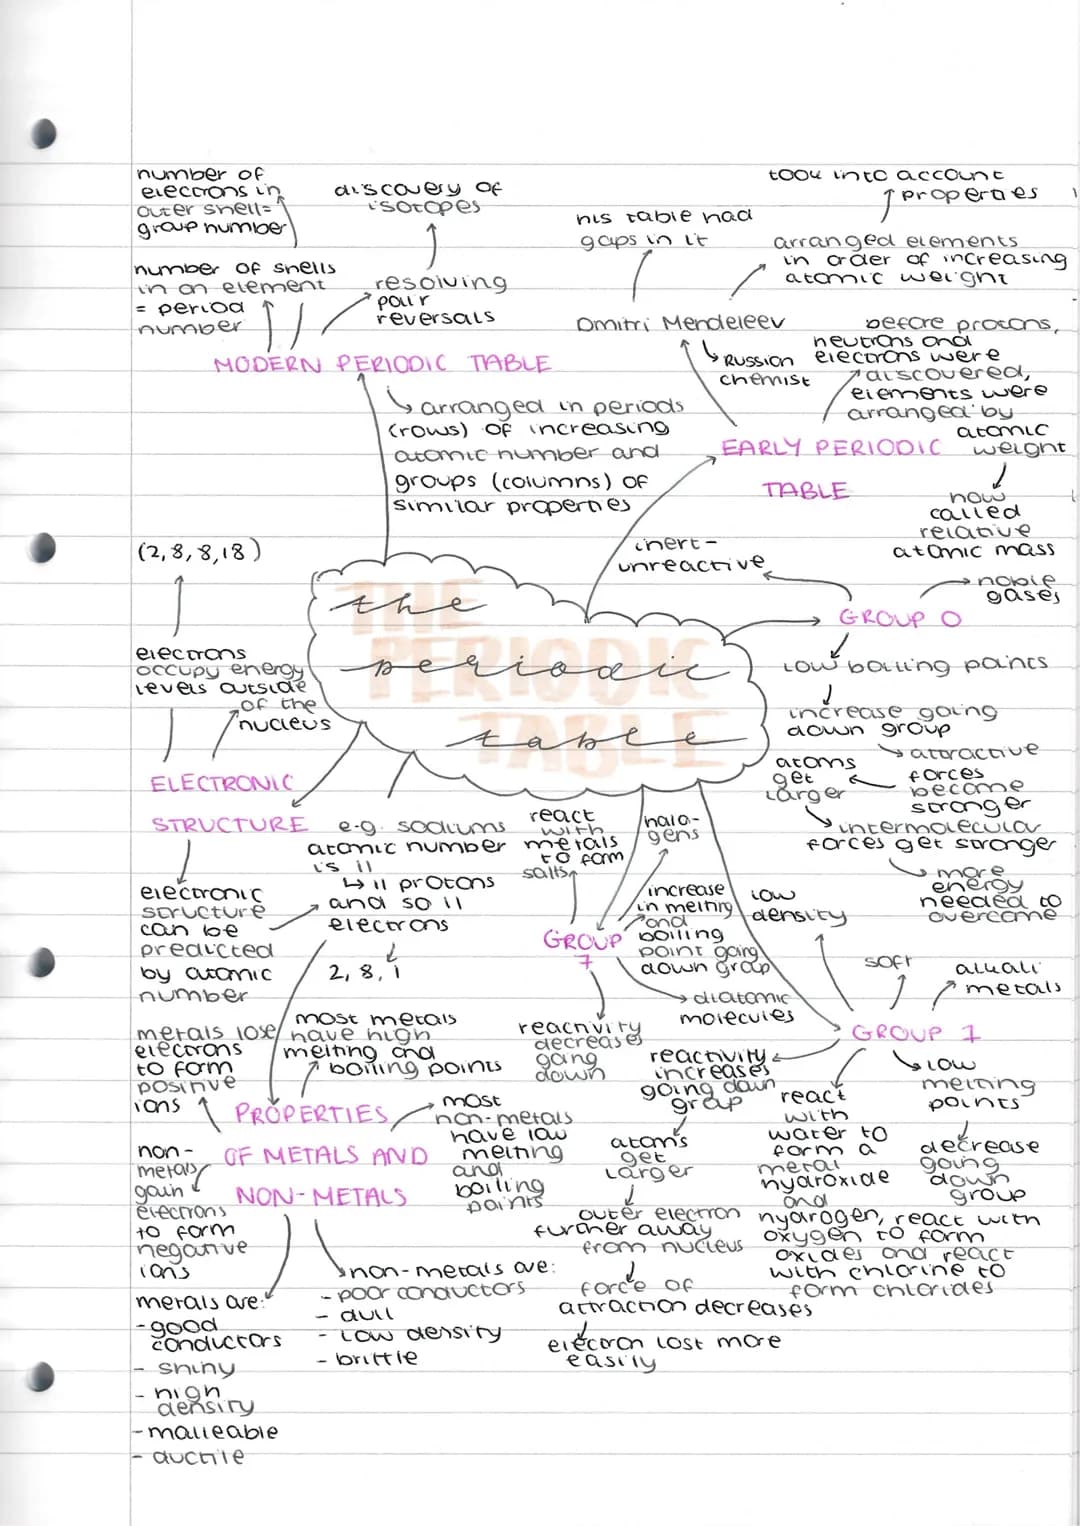 number of
electrons in
outer shell=
group number
number of shells
in an element
= period
number
discovery of
isotopes
resolving
pair
reversals
MODERN PERIODIC TABLE
arranged in periods
(rows) of increasing
atomic number and
groups (columns) of
similar properties
took into account
properties
his table had
gaps in it
arranged elements
in order of increasing
atomic weight
Dmitri Mendeleev
Russian
chemist
before protons,
neutrons and
electrons were
discovered,
elements were
arranged by
atomic
weight
EARLY PERIODIC
TABLE
now
called
relative
atomic mass
inert-
unreactive
noble
gases
GROUP 0
low boiling points
increase going
down group
attractive
forces
become
stronger
atoms
get
larger
intermolecular
forces get stronger
more
energy
needed to
overcome
THE
PERIODIC
TABLE
the
periodic
table
(2,8,8,18)
electrons
occupy energy
levels outside
of the
nucleus
ELECTRONIC
STRUCTURE
electronic
structure
can be
predicted
by atomic
number
e.g. sodiums
atomic number
is 11
11 protons
and so 11
electrons
2, 8, 1
react
with
metals
to form
salts
halo-
gens
GROUP
7
increase
in melting
and
boiling
point going
down group
diatomic
molecules
reactivity
decreases
going
down
low
density
soft
alkali
metals
GROUP 1
low
melting
points
decrease
going
down
group
reactivity
increases
going down
group
atoms
get
larger
outer electron
further away
from nucleus
force of
attraction decreases
electron lost more
easily
react
with
water to
form a
metal
hydroxide
and
hydrogen, react with
oxygen to form
oxides and react
with chlorine to
form chlorides
metals lose
electrons
to form
positive
ions
most metals
have high
melting and
boiling points
PROPERTIES
OF METALS AND
NON-METALS
most
non-metals
have low
melting
and
boiling
points
non-
metals
gain
electrons
to form
negative
ions
metals are:
- good
conductors
- shiny
- high
density
- malleable
- ductile
non-metals are:
- poor conductors
- dull
- low density
- brittle